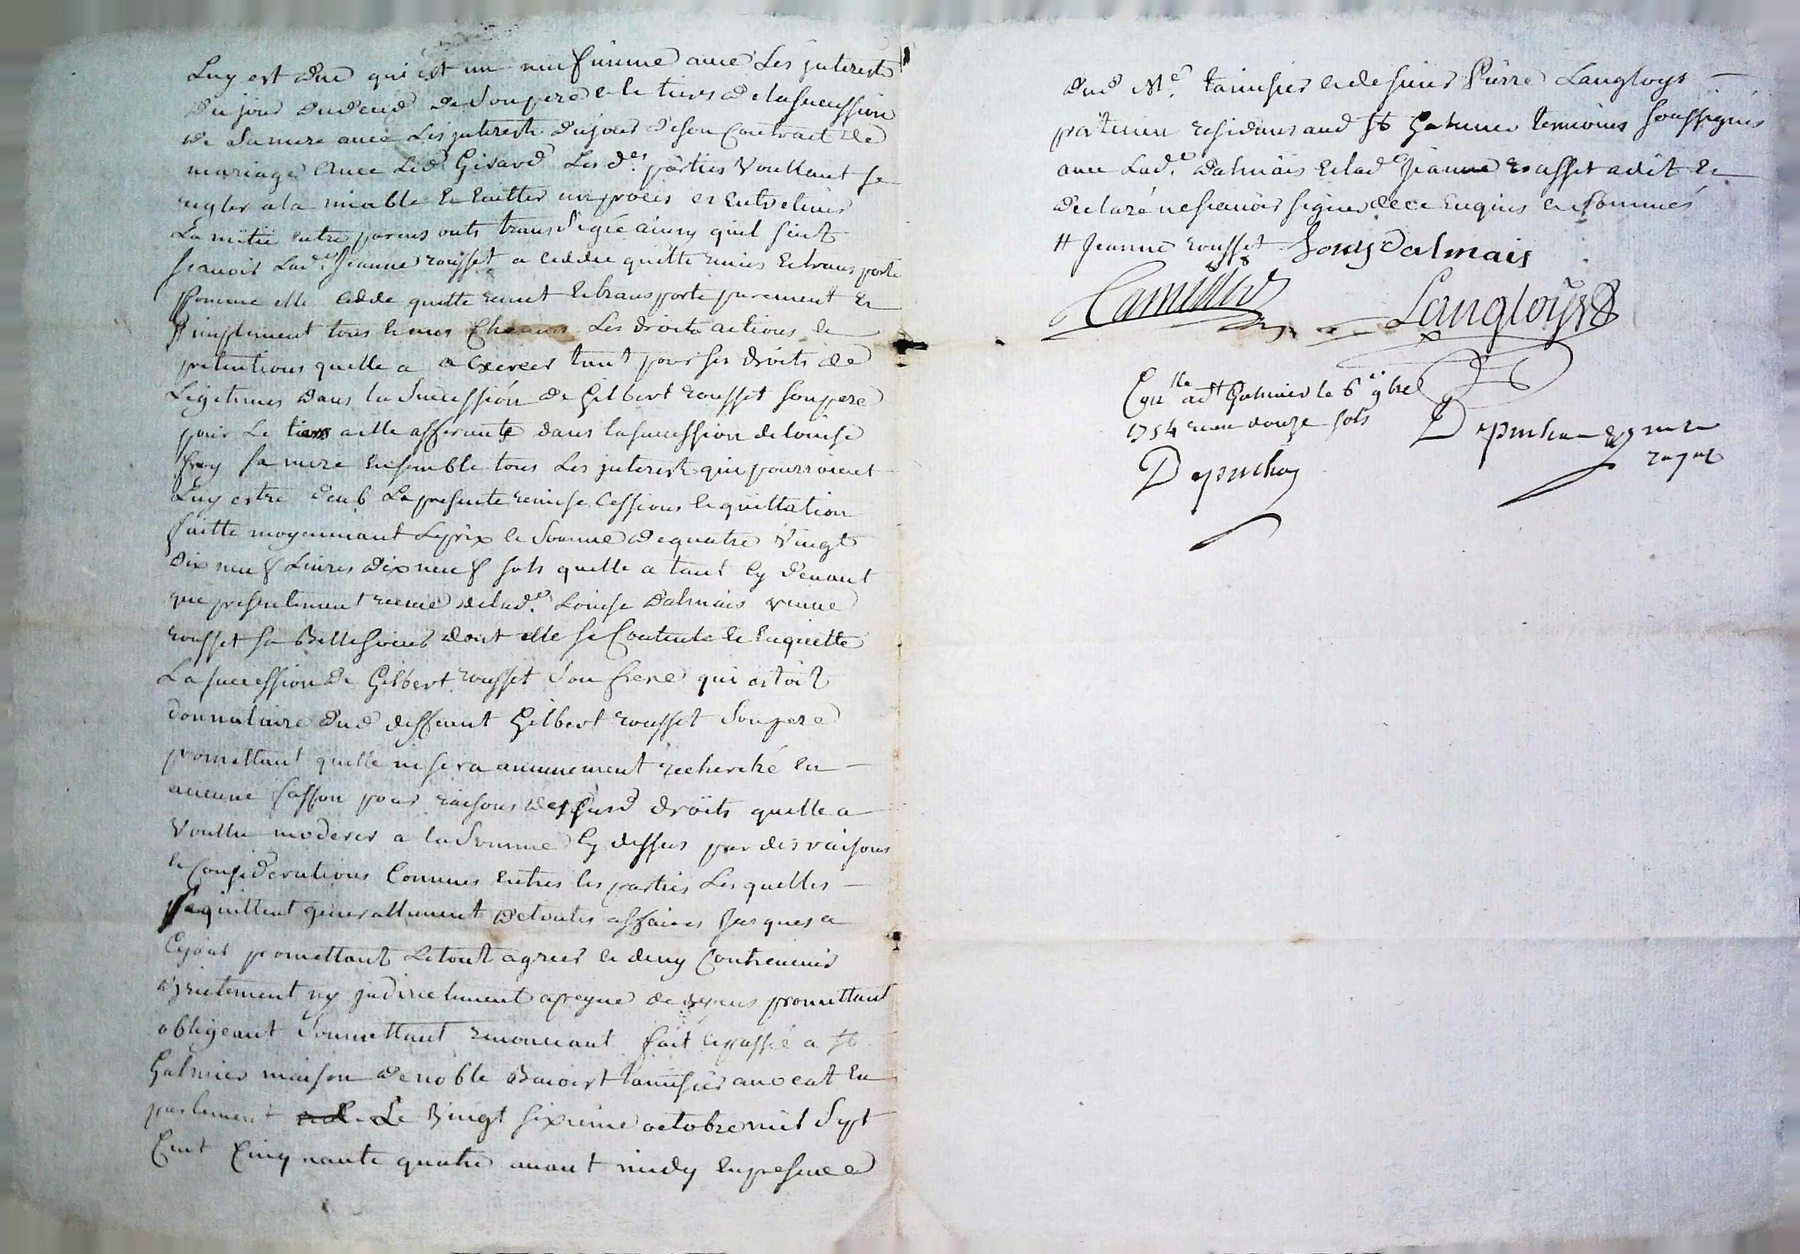 Luy est due qui est un neufvieme avec Les jnterests
du jour du deced de Son pere & le tiers de la succession
de Sa mere avec Les jnterests du jour de son Contract de
mariage avec led Girard Les d.es parties Voullant se
regler a la miable & Eviter un procès et Entretenir
La mitié entre parens onts transsigée ainsy quil suit
scavoir Lad.e Jeanne rousset a ceddée quitté remis & transporté
Comme elle cedde quitte remet & transporte purement Et
Simplement tous Les droits actions &
pretentions quelle a a exercer tant pour ses droits de
Legitimes dans la Succession de Gilbert rousset son pere
pour Le tiers a elle afferante dans la succession de Louise
sa mere Ensemble tous Les jnterest qui pourroient
Luy estre deub La presente remise Cessions & quittation
faitte moyennant Le prix & Somme de quatre Vingt
dix neuf Livres dix neuf sols quelle a tant Cy devant
que presentement receue de lad.e Louise dalmais veuve
rousset sa Belle soeur dont elle se Contente & En quitte
La succession de Gilbert rousset Son frere qui estoit
donnataire dud deffunt Gilbert rousset Son pere
promettant quelle ne sera aucunement recherché En
aucune fasson pour raisons desusd droits quelle a
Voullu moderer a la Somme Cy dessus par des raisons
& Considerations Connues Entres les parties Lesquelles
Se quittent generallement de toutes affaires Jusques a
Ce jour promettant Le tout agreer & deny Contrevenir
directement ny jndirectement a peyne de depens promettant
obligeant Soumettant renonceant fait & passé a St
Galmier maison de noble Benoist tamisier avocat En
parlement Le Vingt sixieme octobre mil Sept
Cent Cinquante quatre avant midy En presence
dud M.e tamisier & de sieur Pierre Langloys
residans aud St Galmier temoins soussignés
avec Lad.e dalmais & lad.e Jeanne rousset a dit &
declaré ne scavoir signer de ce Enquise & Sommés
# Jeanne rousset Louise Dalmais
Tamisier Langloys
Con.lle a St Galmier le 6e 9bre
1754 receu douze sols
Depuichay